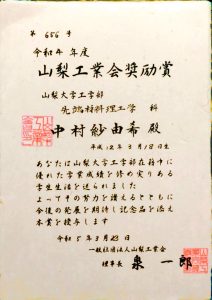 第 656 号
令和4年度
山梨工業会奨励賞
山梨大学工学部
先端材料理工学 科
中村紗由希 殿
平成12年3月18日生
あなたは山梨大学工学部在籍中に
優れた学業成績を修め実りある
学生生活を送られました
よってその努力を讃えるとともに
今後の発展を期待し記念品を添え
本賞を授与します
令和5年3月23日
一般社団法人山梨工業会
理事長 泉 一郎